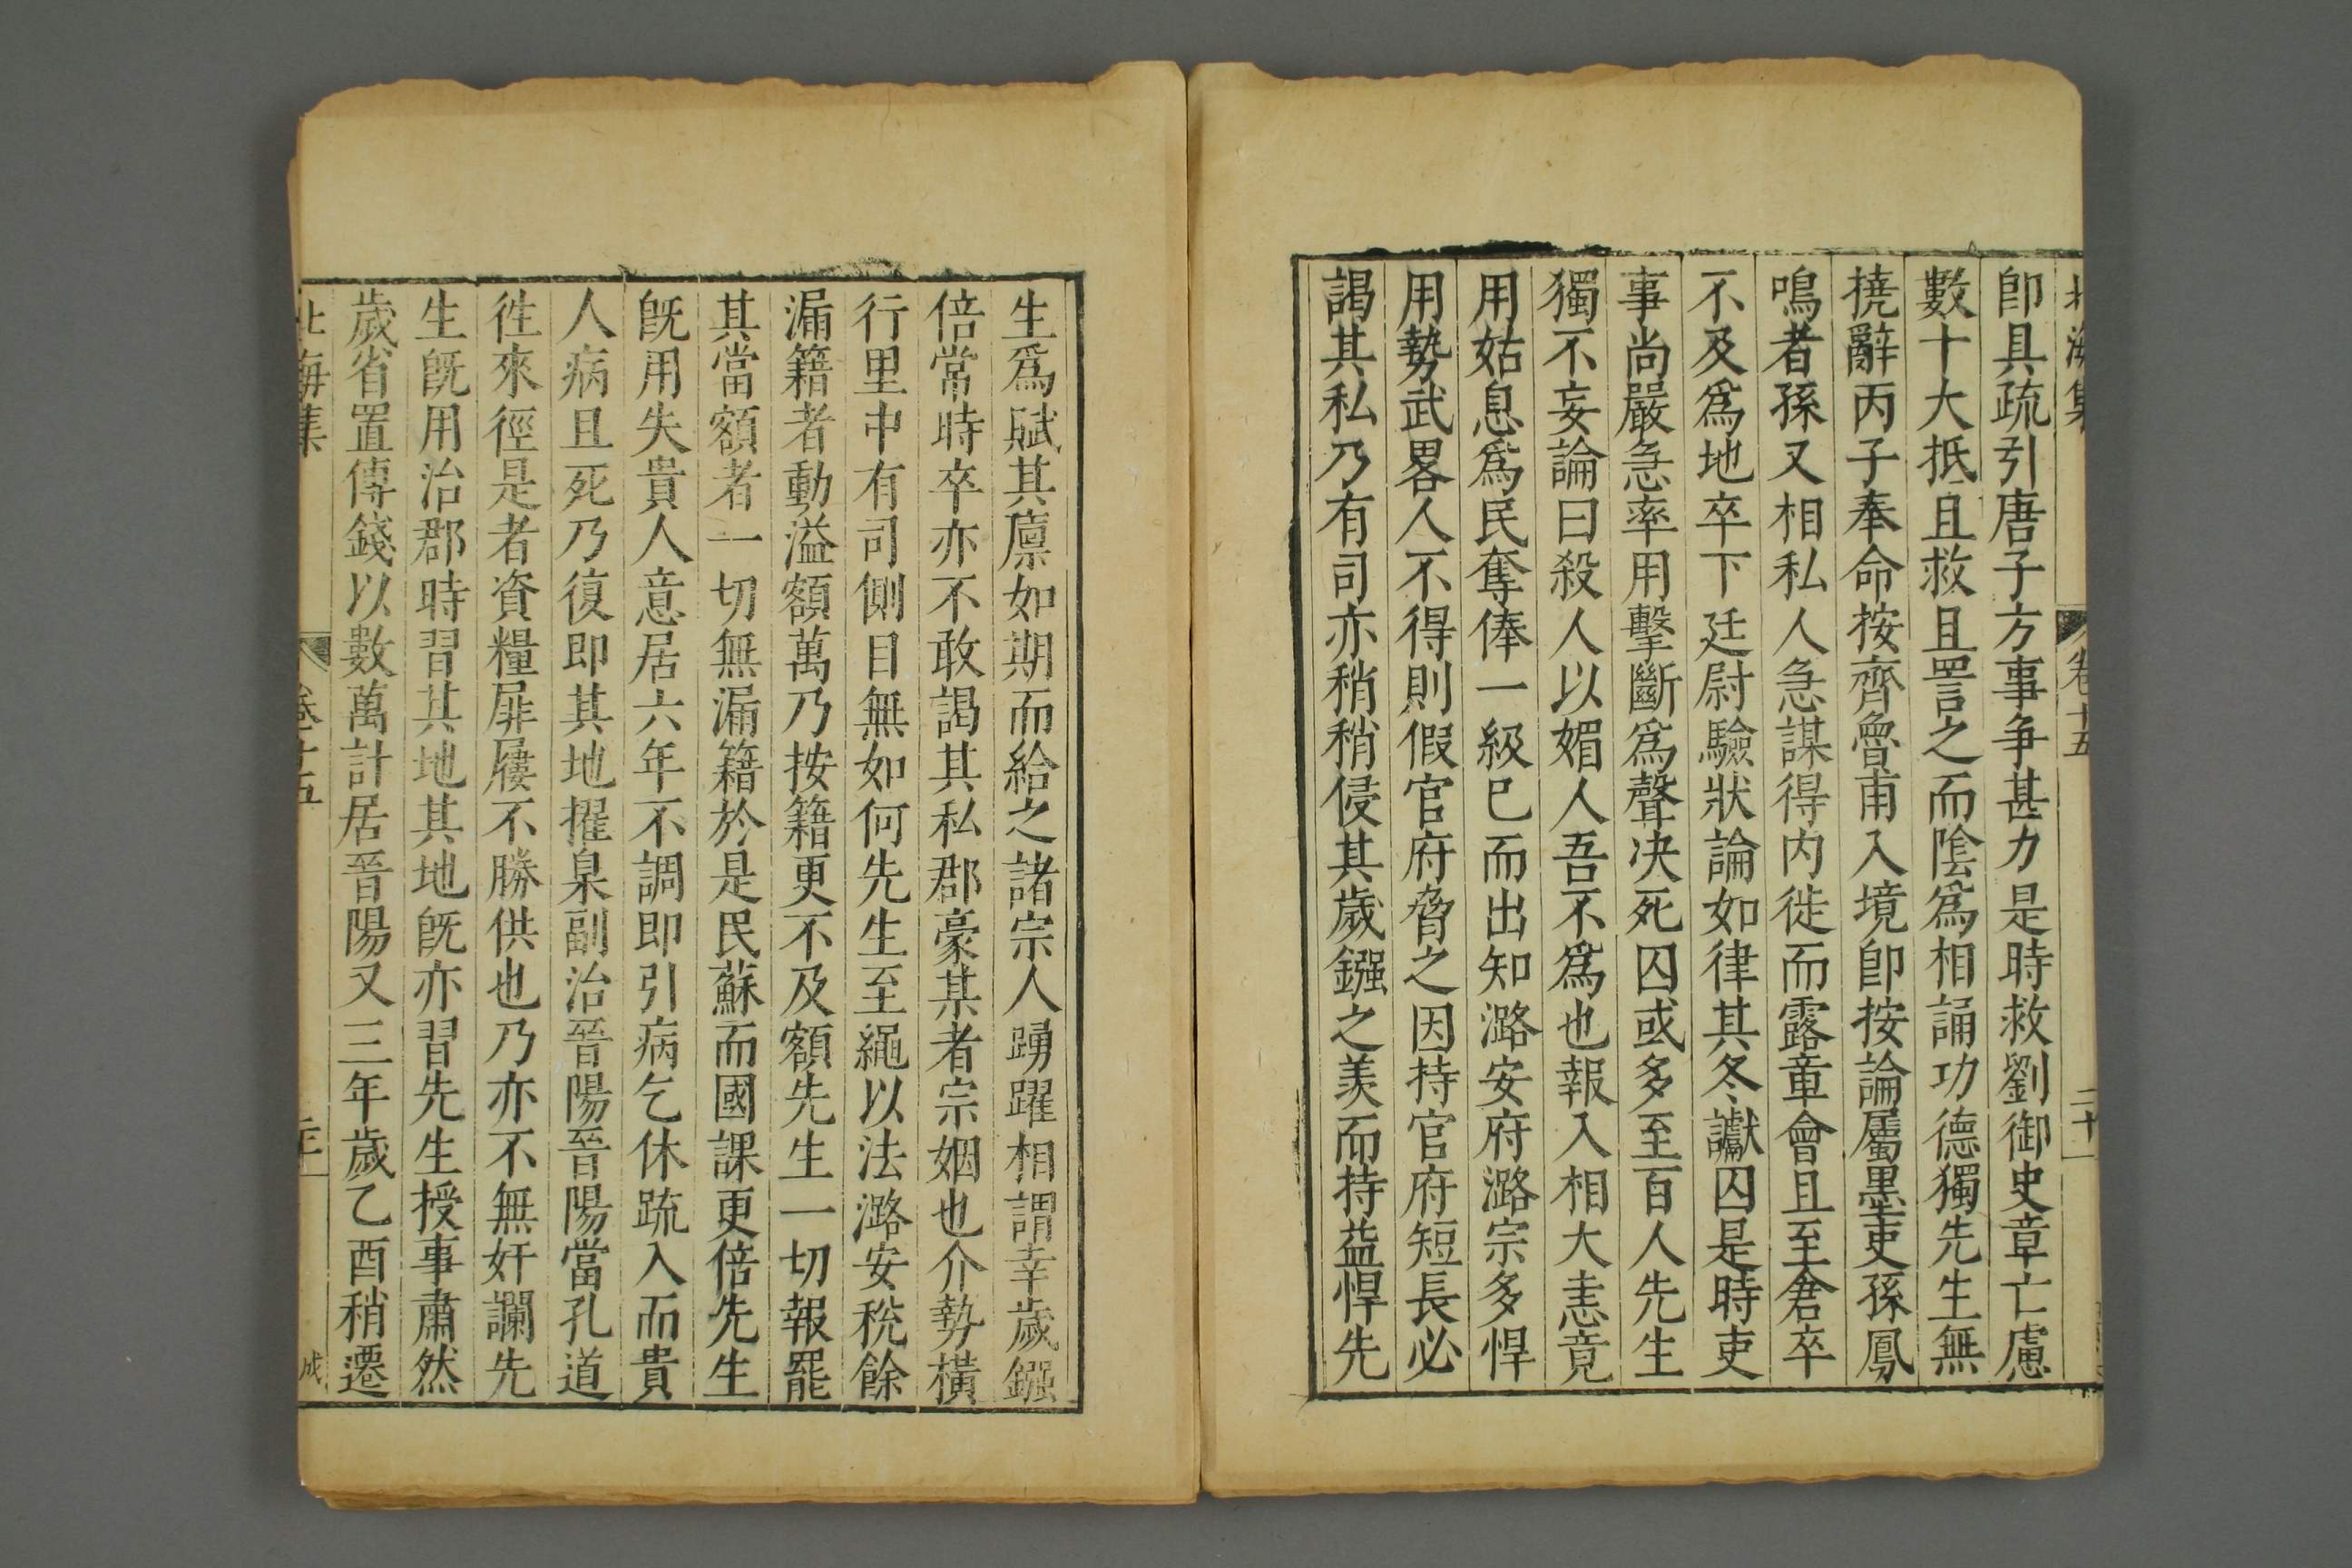 北海集 卷十五 二十一
卽具疏引唐子方事爭甚力是時救劉御史章亡慮
數十大抵且救且詈之而陰爲相誦功德獨先生無
撓辭丙子奉命按齊魯甫入境卽按論屬墨吏孫鳳
鳴者孫又相私人急謀得内徙而露章會且至倉卒
不及爲地卒下廷尉驗狀論如律其冬讞囚是時吏
事尚嚴急率用擊斷爲聲决死囚或多至百人先生
獨不妄論曰殺人以媚人吾不爲也報入相大恚竟
用姑息爲民奪俸一級已而出知潞安府潞宗多悍
用勢武畧人不得則假官府脅之因持官府短長必
謁其私乃有司亦稍稍侵其歲鏹之羡而持益悍先
生爲賦其廪如期而給之諸宗人踴躍相謂幸歲鏹
倍常時卒亦不敢謁其私郡豪某者宗姻也介勢橫
行里中有司側目無如何先生至繩以法潞安稅餘
漏籍者動溢額萬乃按籍更不及額先生一切報罷
其當額者一切無漏籍於是民蘇而國課更倍先生
旣用失貴人意居六年不調即引病乞休疏入而貴
人病且死乃復即其地擢臬副治晉陽晉陽當孔道
徃來徑是者資糧屝屨不勝供也乃亦不無奸讕先
生旣用治郡時習其地其地旣亦習先生授事肅然
歲省置傳錢以數萬計居晉陽又三年歲乙酉稍遷
北海集 卷十五 二十一 成